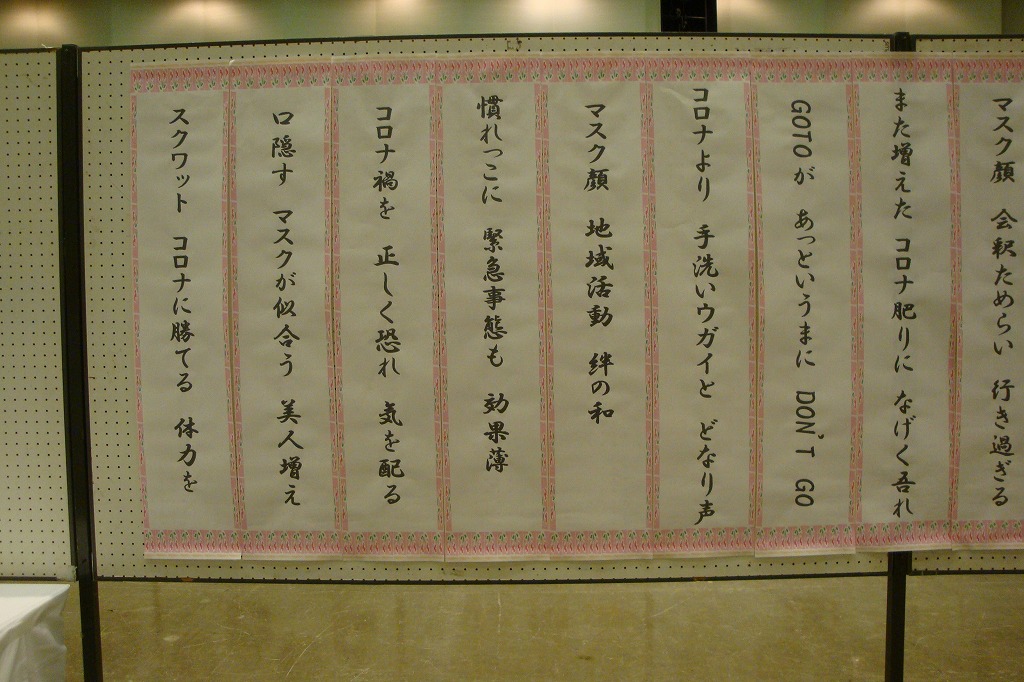 マスク顔 会釈ためらい 行き過ぎる
また増えた コロナ肥りに なげく吾れ
GOTOが あっというまに DON'T GO
コロナより 手洗いウガイと どなり声
マスク顔 地域活動 絆の和
慣れっこに 緊急事態も 効果薄
コロナ禍を 正しく恐れ 気を配る
口隠す マスクが似合う 美人増え
スクワット コロナに勝てる 体力を